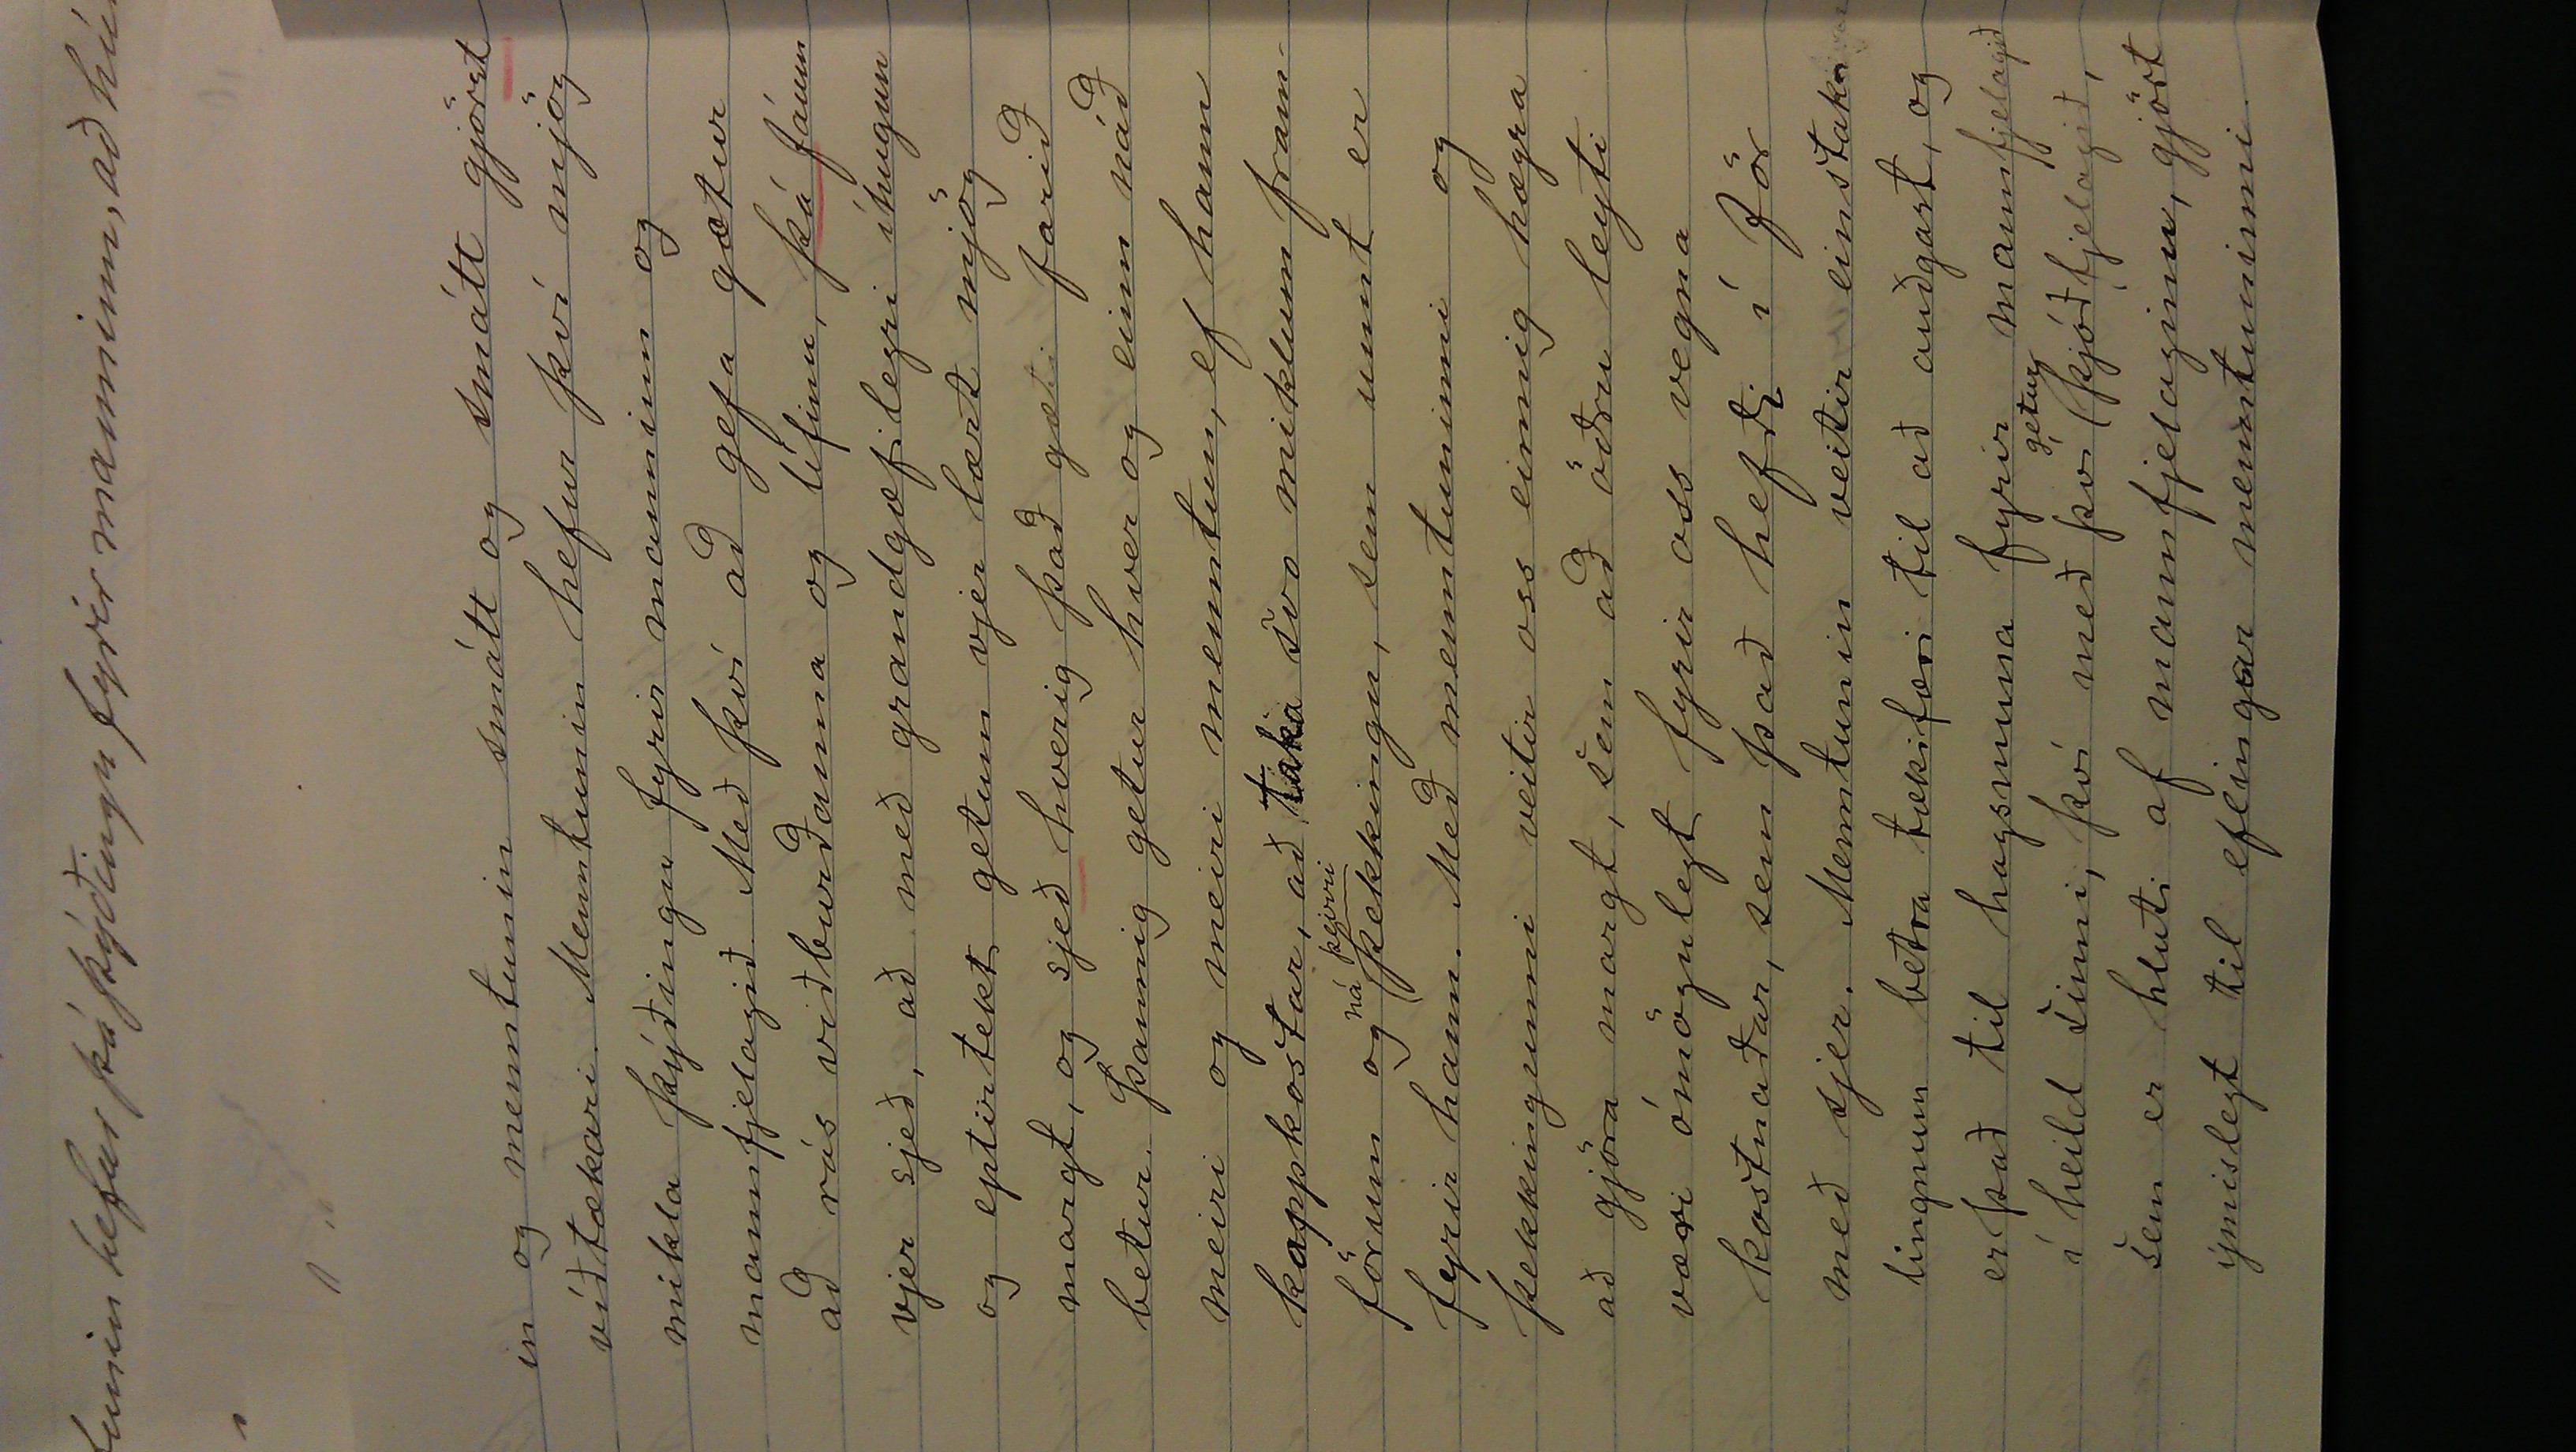 tunin hefur þá þýðingu fyrir manninn, að hún
in og menntunin smátt og smátt gjörst
víðtækari. Menntunin hefur því mjög
mikla þýðingu fyrir manninn og
mannfjelagið. Með því að gefa gætur
að rás viðburðanna og lífinu, þá fáum
vjer sjeð, að með grandgæfilegri íhugun
og eptirtekt getum vjer lært mjög
margt, og sjeð hverig það gæti farið
betur. Þannig getur hver og einn náð
meiri og meiri menntun, ef hann
kappkostar, að taka svo miklum fram-
förum og ná þeirri þekkingu, sem unt er
fyrir hann. Með menntuninni og
þekkingunni veitir oss einnig hægra
að gjöra margt, sem að öðru leyti
væri ómögulegt fyrir oss vegna
kostnaðar, sem það hefði í för
með sjer. Menntunin veitir einstak
lingnum betra tækifæri til að auðgast, og
er það til hagsmuna fyrir mannfjelagið
í heild sinni; því með því getur þjóðfjelagið,
sem er hluti af mannfjelaginu, gjört
ýmislegt til eflingar menntuninni.